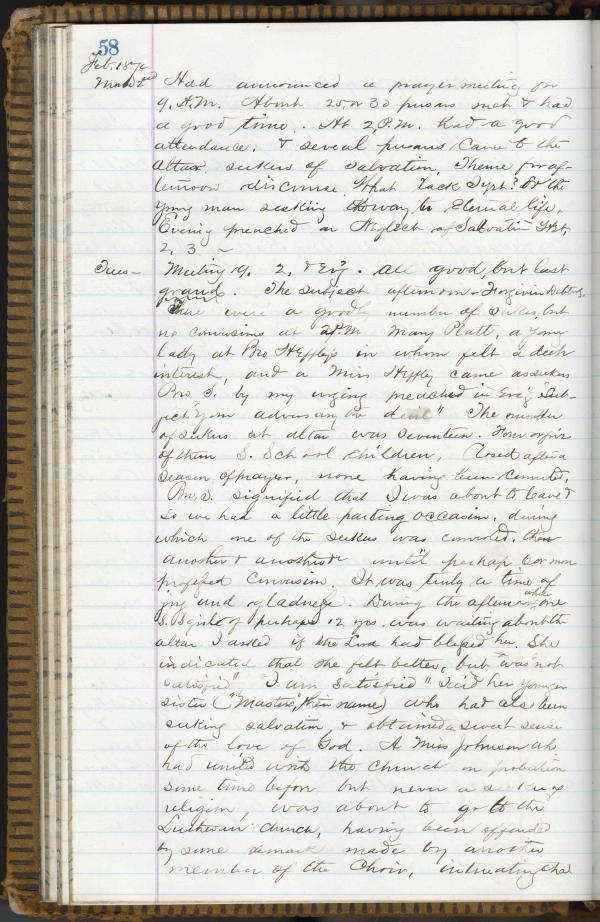 58
Feb. 1879
Mond 2nd Had announced a prayer meeting for
9, A.M. About 25 or 30 persons met & had
a good time. At 2, P.M. had a good
attendance. & several persons came to the
altar seekers of salvation, Theme for af-
ternoon discourse What lack I yet? Or the
young man seeking the way to Eternal life.
Evening preached on Neglect of Salvation Heb,
2, 3. —
Tues — Meeting 9, 2, & Evg. all good, but last
grand. The subject afternoon - Forgiven Debtors,
There were a goodly number of seekers, but
no conversions at 2 P.M. Mary Platt, a young
lady at Bro Heffley's in whom felt a deep
interest, and a Miss Heffley came as seekers
Bro S. by my urging preached in Eve'g Sub-
ject "Your adversary the devil" The number
of seekers at altar was seventeen. Four or five
of them S. School children, Closed after a
season of prayer, none having been converted,
Bro. S. signified that I was about to leave &
so we had a little parting occasion, during
which one of the seekers was converted, then
another & another & until perhaps 6 or more
professed conversion. It was truly a time of
joy and gladness. During the afternoon, while one
S. S girl of perhaps 12 yrs. was waiting about the
altar I asked if the Lord had blessed her. She
indicated that she felt better, but "was not
satisfied" "I am satisfied" said her younger
sister ("Masters," their name) who had also been
seeking salvation & obtained a sweet sense
of the love of God. A Miss Johnson who
had united with the church on probation
some time before but never a seeker of
religion, was about to go to the
Lutheran church, having been offended
by some remark made by another
member of the Choir, intimating that